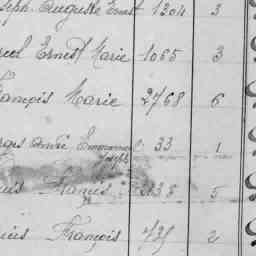 seph Auguste Ernest 1304 3
cel Ernest Marie 1065 3
ançois Marie 2768 6
rges André Emmanuel 33 1
Joseph
uis François 38 5
uis François 2